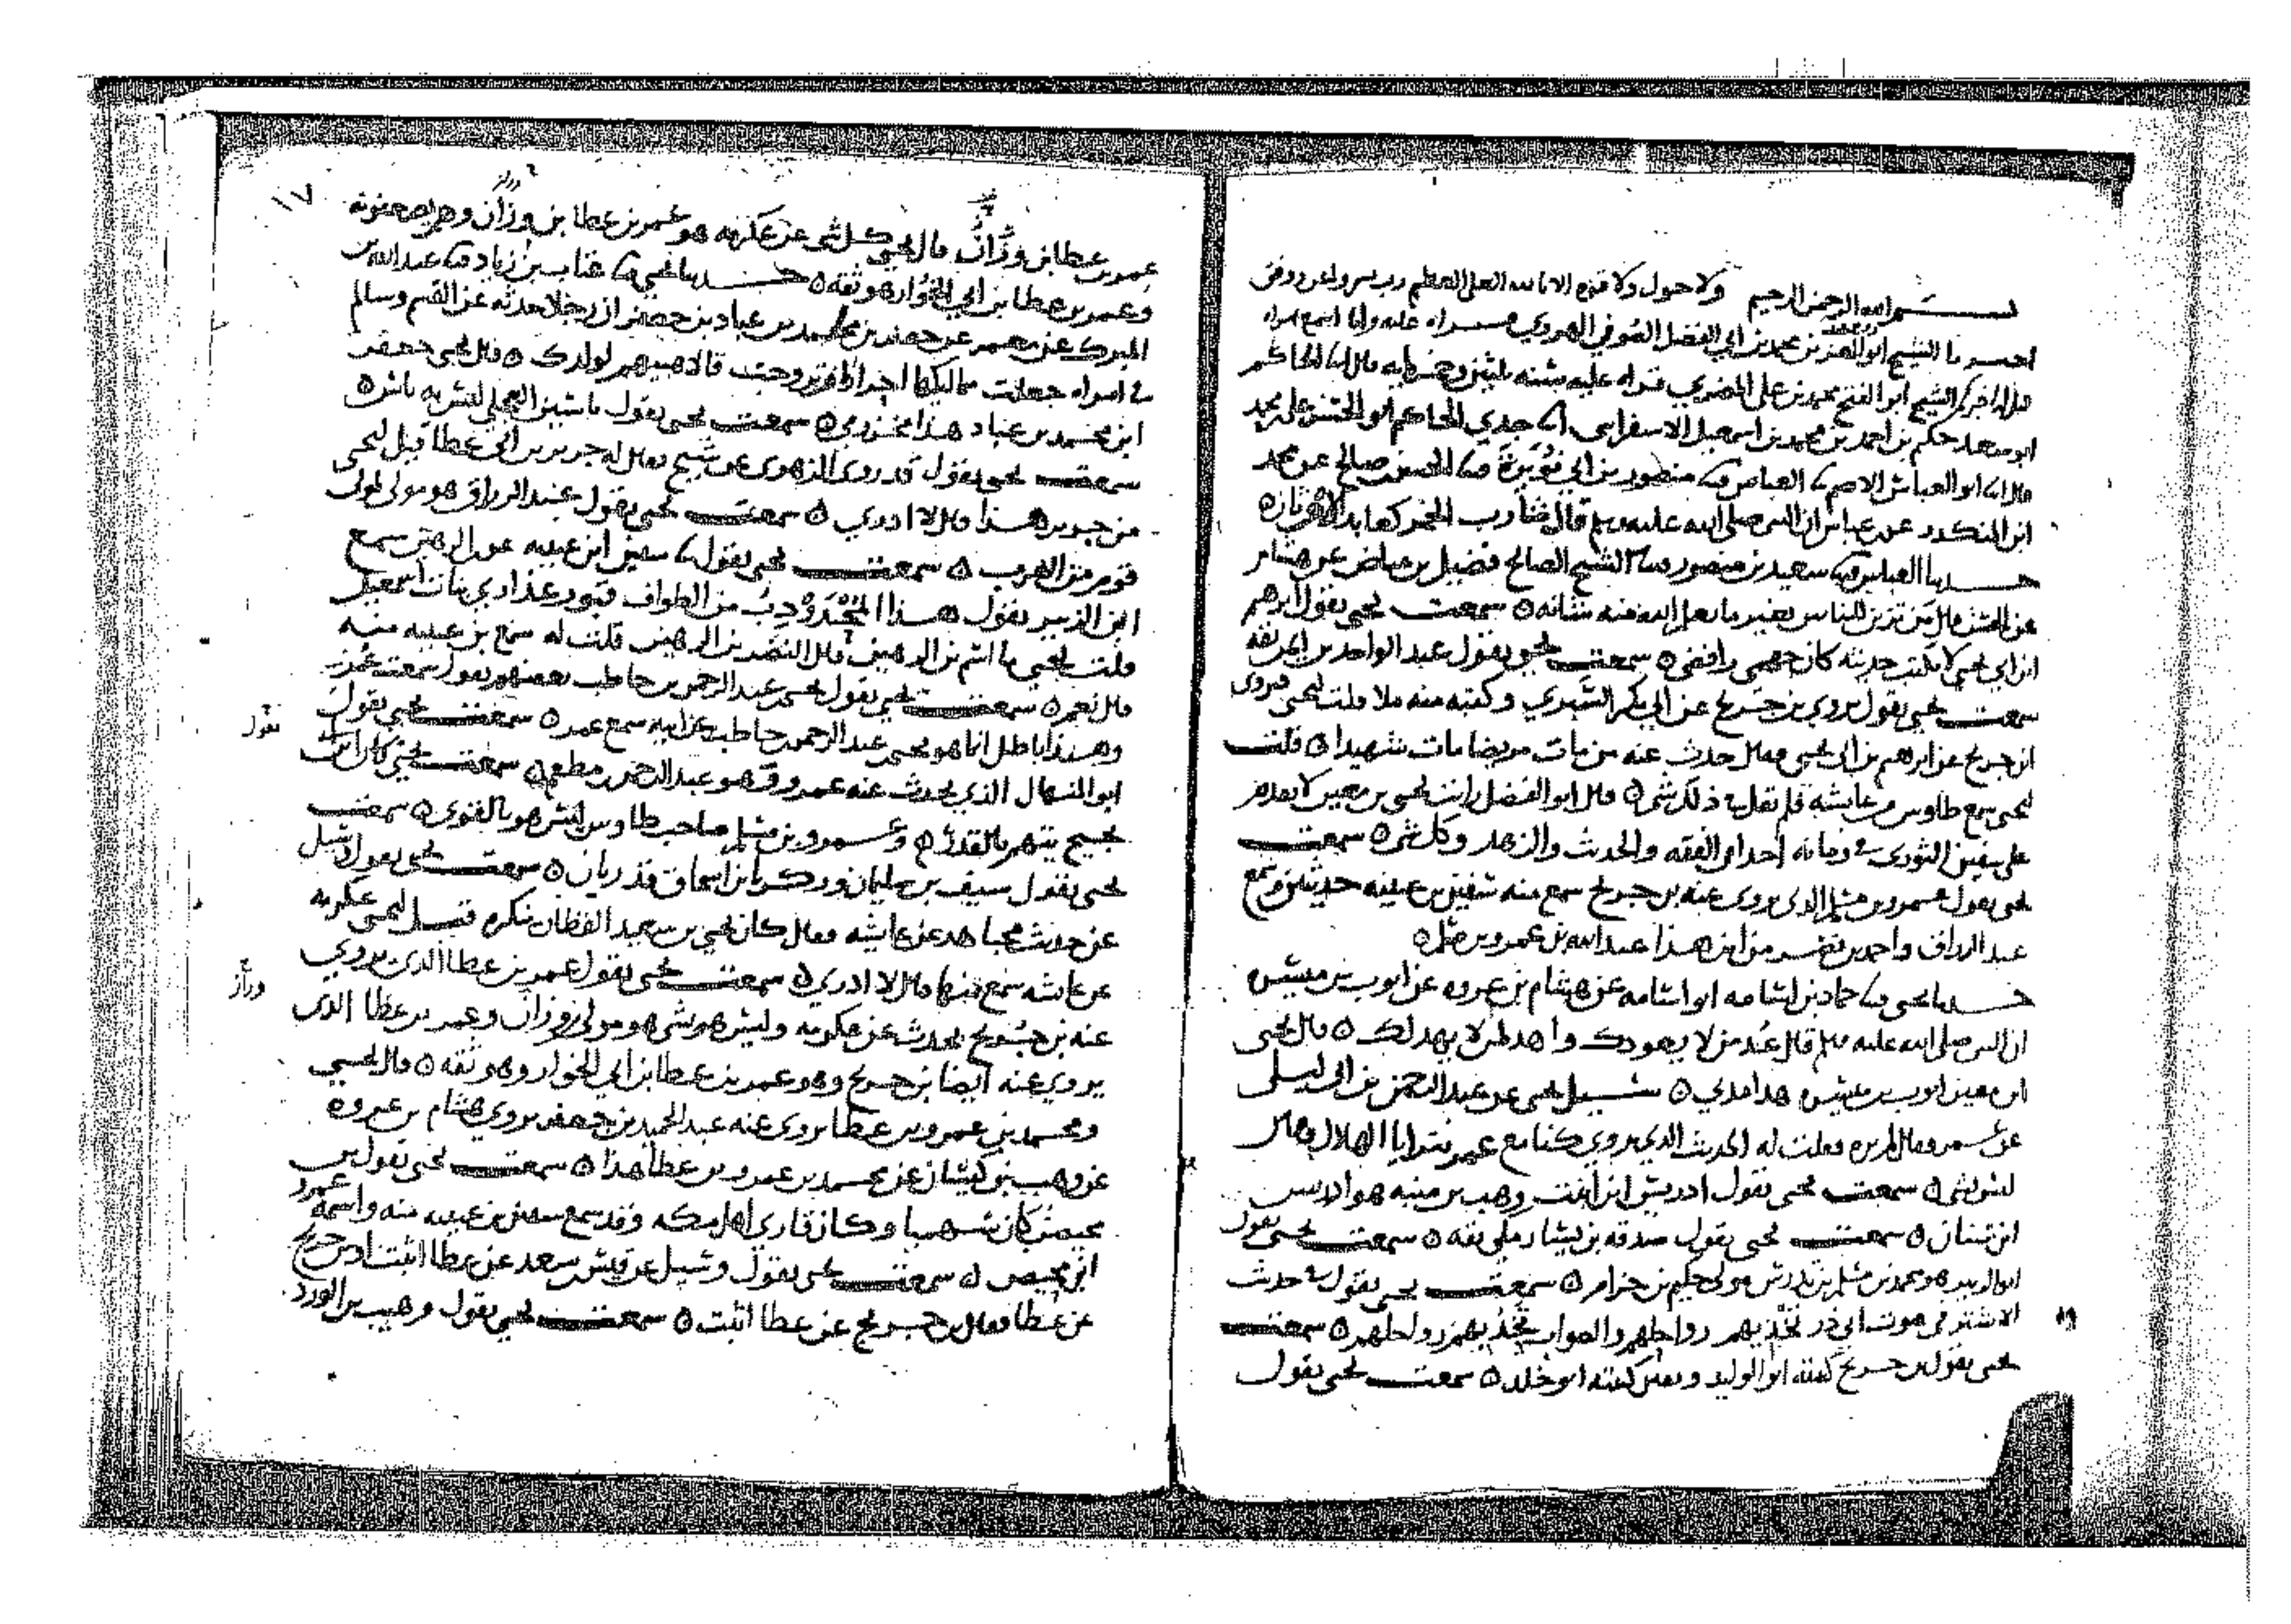 بسم الله الرحمن الرحيم ولا حول ولا قوة الا بالله العلي العظيم رب يسر واعن ووفق
اخبرنا الشيخ ابو بن محمد بن ابي الفضل الصوفي الهروي قراه عليه وانا اسمع
قال اخبركم الشيخ ابو الفتح محمد بن علي المضري قراه عليه سنه ثلثين وخمسمايه قال انا الحاكم
ابو سعد حكم بن احمد بن محمد بن اسمعيل الاسفرايني انا جدي الحاكم ابو الحسن علي بن محمد
قال انا ابو العباس الاصم نا العباس نا منصور بن ابي نويرة نا الحسن بن صالح عن محمد
ابن المنكدر عن بن عباس ان النبي صلى الله عليه وسلم قال شارب الخمر كعابد الاوثان ه
حدثنا العباس نا سعيد بن منصور نا الشيخ الصالح فضيل بن عياض عن هشام
عن الحسن قال من تزين للناس بغير ما يعلم الله منه شانه ه سمعت يحيى يقول ابرهيم
ابن ابي يحيى لا يكتب حديثه كان جهمي رافضي ه سمعت يحيى يقول عبد الواحد بن ثقه
سمعت يحيى يقول يروي بن جريج عن ابي بكر الهذلي وكتبه منه املا قلت ليحيى فيروي
ابن جريج عن ابرهيم بن ابي يحيى فقال حدث عنه من مات مريضا مات شهيدا ه قلت
ليحيى سمع طاوس من عايشه فلم يقل في ذلك شي ه قال ابو الفضل رايت يحيى بن معين لا يقدم
على سفين الثوري في زمانه احدا في الفقه والحديث والزهد وكل شي ه سمعت
يحيى يقول عمرو بن مسلم الذي يروي عنه بن جريج سمع منه سفين بن عيينه حديثين وسمع
عبد الرزاق واحد بن من ابن هذا عبد الله بن عمرو بن مسلم ه
حدثنا يحيى نا حماد بن اسامه ابو اسامه عن هشام بن عروه عن ايوب بن ميسره
ان النبي صلى الله عليه وسلم قال عد من لا يعودك واهد لمن لا يهد لك ه قال يحيى
ابن معين ايوب بن ميسره هذا مدني ه سئل يحيى عن عبد الرحمن بن ابي ليلى
عن عمر فقال لم يره فقلت له الحديث الذي يروي كنا مع عمر نترايا الهلال فقال
ليس بشي ه سمعت يحيى يقول ادريس ابن ابنت وهب بن منبه هو ادريس
ابن سنان ه سمعت يحيى يقول صدقه بن يسار مكي ثقه ه سمعت يحيى يقول
ابو الزبير هو محمد بن مسلم بن تدرس مولى حكيم بن حزام ه سمعت يحيى يقول في حديث
الاشتر في موت ابي ذر تخد بهم رواحلهم والصواب تخد بهم رواحلهم ه سمعت
يحيى يقول بن جريج كنيته ابو الوليد ويقال كنيته ابو خالد ه سمعت يحيى يقول
١٧
عمر بن عطا بن وراز قال يحيى كل شي عن عكرمه هو عمر بن عطا بن وراز وهم يضعفونه
وعمر بن عطا بن ابي الخوار هو ثقه ه حدثنا يحيى نا عتاب بن زياد نا عبد الله بن
المبرك عن معمر عن جعفر بن محمد بن عباد بن جعفر ان رجلا حدثه عن القسم وسالم
في امراه جعلت مماليكها احرارا ان تزوجت قالا هبيهم لولدك ه قال يحيى جعفر
ابن محمد بن عباد هذا مخزومي ه سمعت يحيى يقول ياسين العجلي ليس به باس ه
سمعت يحيى يقول قد روى الزهري عن شيخ يقال له جرير بن ابي عطا قيل ليحيى
من جرير هذا قال لا ادري ه سمعت يحيى يقول عبد الرزاق هو مولى لمولى
قوم من العرب ه سمعت يحيى يقول نا سفين ابن عيينه عن الرهين سمع
ابن الزبير يقول هذا المحدودب من الطواف قبور عذاري بنات اسمعيل
قلت ليحيى ما اسم بن الرهين قال النضر بن الرهين قلت له سمع بن عيينه منه
قال نعم ه سمعت يحيى يقول يحيى بن عبد الرحمن بن حاطب بعضهم يقول سمعت عمر
وهذا باطل انما هو يحيى بن عبد الرحمن بن حاطب عن ابيه سمع عمر ه سمعت يحيى يقول
يقول
ابو المنهال الذي يحدث عنه عمرو هو عبد الرحمن بن مطعم ه سمعت يحيى كان ابن ابي
نجيح يتهم بالقدر ه وعمرو بن مسلم صاحب طاوس ليس هو بالقوي ه سمعت
يحيى يقول سيف بن سليمان وزكريا بن اسحاق قدريان ه سمعت يحيى يقول وسئل
عن حديث مجاهد عن عايشه فقال كان يحيى بن سعيد القطان ينكره قيل ليحيى عكرمه
عن عايشه سمع منها قال لا ادري ه سمعت يحيى يقول عمر بن عطا الذي يروي
وراز
عنه بن جريج يحدث عن عكرمه وليس هو بشي هو مولى بن وراز وعمر بن عطا الذي
يروي عنه ايضا بن جريج وهو عمر بن عطا بن ابي الخوار وهو ثقه ه قال يحيى
ومحمد بن عمرو بن عطا يروي عنه عبد الحميد بن جعفر يروي هشام بن عروه
عن وهب بن كيسان عن محمد بن عمرو بن عطا هذا ه سمعت يحيى يقول بن
محيصن كان شهما وكان قاري اهل مكه وقد سمع سفين بن عيينه منه واسمه عمر
ابن محيصن ه سمعت يحيى يقول وسئل عن قيس بن سعد عن عطا اثبت او بن جريج
عن عطا فقال بن جريج عن عطا اثبت ه سمعت يحيى يقول وهيب بن الورد